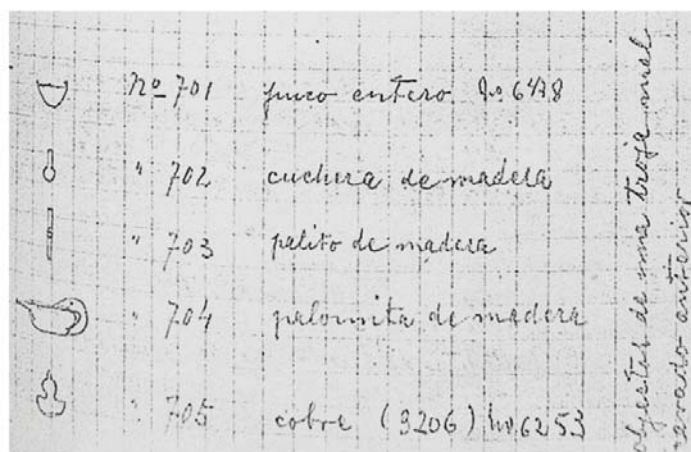 nº 701 puco entero No 6438
" 702 cuchara de madera
" 703 palito de madera
" 704 palomita de madera
" 705 cobre (3206) No 6253
objectos de una troja
cavado anterior